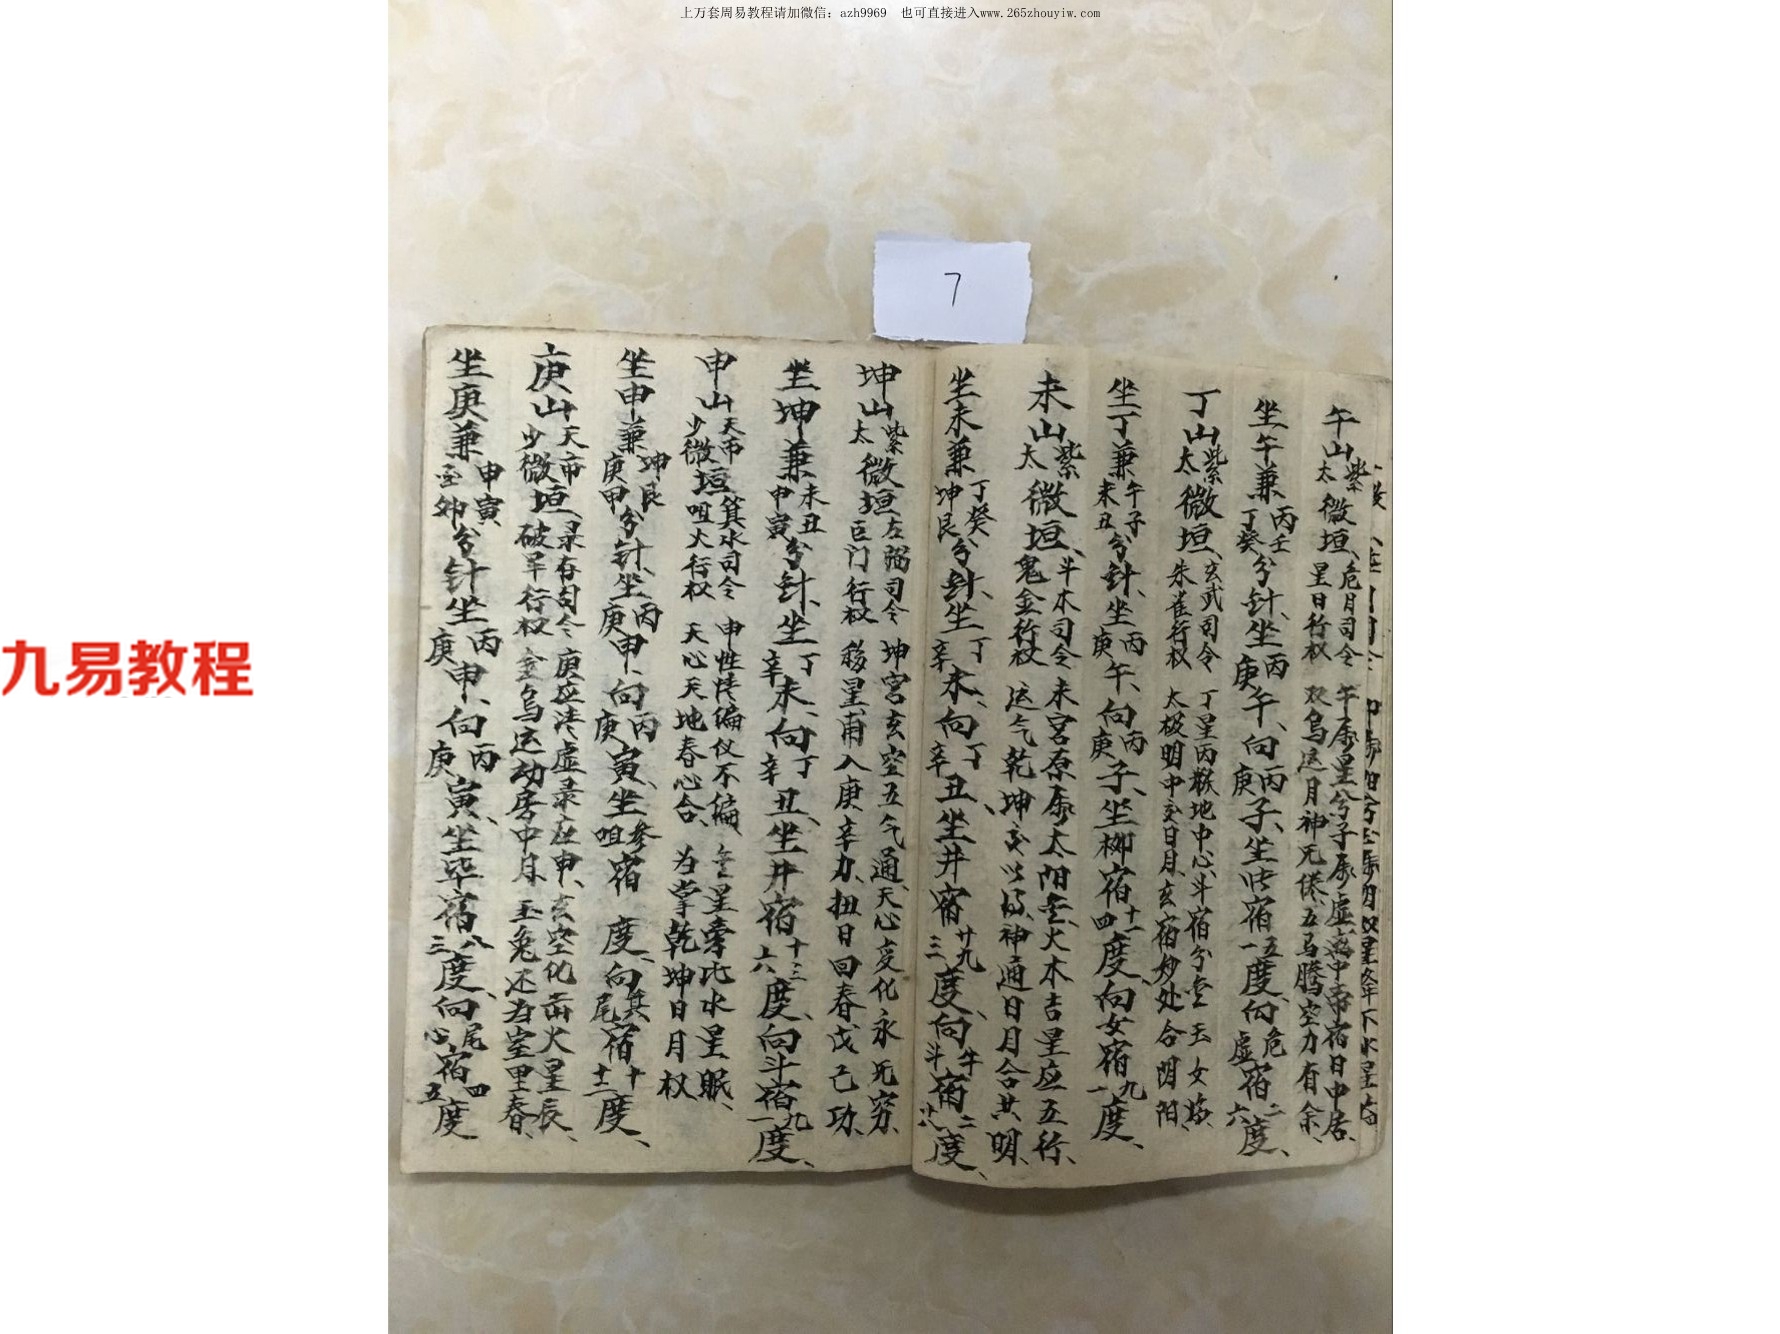 上万套周易教程请加微信：azh9969 也可直接进入www.265zhouyiw.com
7
九易教程
午山紫太微垣、危月司令星日行权 午属星兮子属虚 中帝宿日中居、双乌运月神无倦、五马腾空力有余、
坐午兼丙壬丁癸分针、坐丙庚午、向丙庚子、坐 宿五一度、向危虚宿二六度、
丁山紫太微垣、玄武司令朱雀行权 丁星丙 地中心斗宿分 玉女 太极明中交日月玄宿妙处合阴阳、
坐丁兼午子未丑分针、坐丙庚午、向丙庚子、坐柳宿十一四度、向女宿九一度、
未山紫太微垣、斗木司令鬼金行权 未宫原属太阳 火木吉星应五行、运气乾坤交以 神通日月合共明、
坐未兼丁癸坤艮分针、坐丁辛未、向丁辛丑、坐井宿廿九三度、向牛斗宿二 度、
坤山紫太微垣左弼司令巨门行权 坤宫玄空五气通、天心变化永无穷、移星 入庚辛力、扭日回春戊己功、
坐坤兼未丑申寅分针、坐丁辛未、向丁辛丑、坐井宿十三六度、向斗宿九一度、
申山天市少微垣箕水司令咀火行权 申性情偏仪不偏、 星牵比水星眠、天心天地春心合、为掌乾坤日月权
坐申兼坤艮庚甲分针、坐丙庚申、向丙庚寅、坐参咀宿 度、向箕尾宿十十二度、
庚山天市少微垣、录存司令破军行权 庚应 虚录应申、玄空化 火星辰、金乌运动房中月、玉兔还为室里春、
坐庚兼申寅 卯分针坐丙庚申、向丙庚寅、坐毕宿八三度、向尾心宿四五度